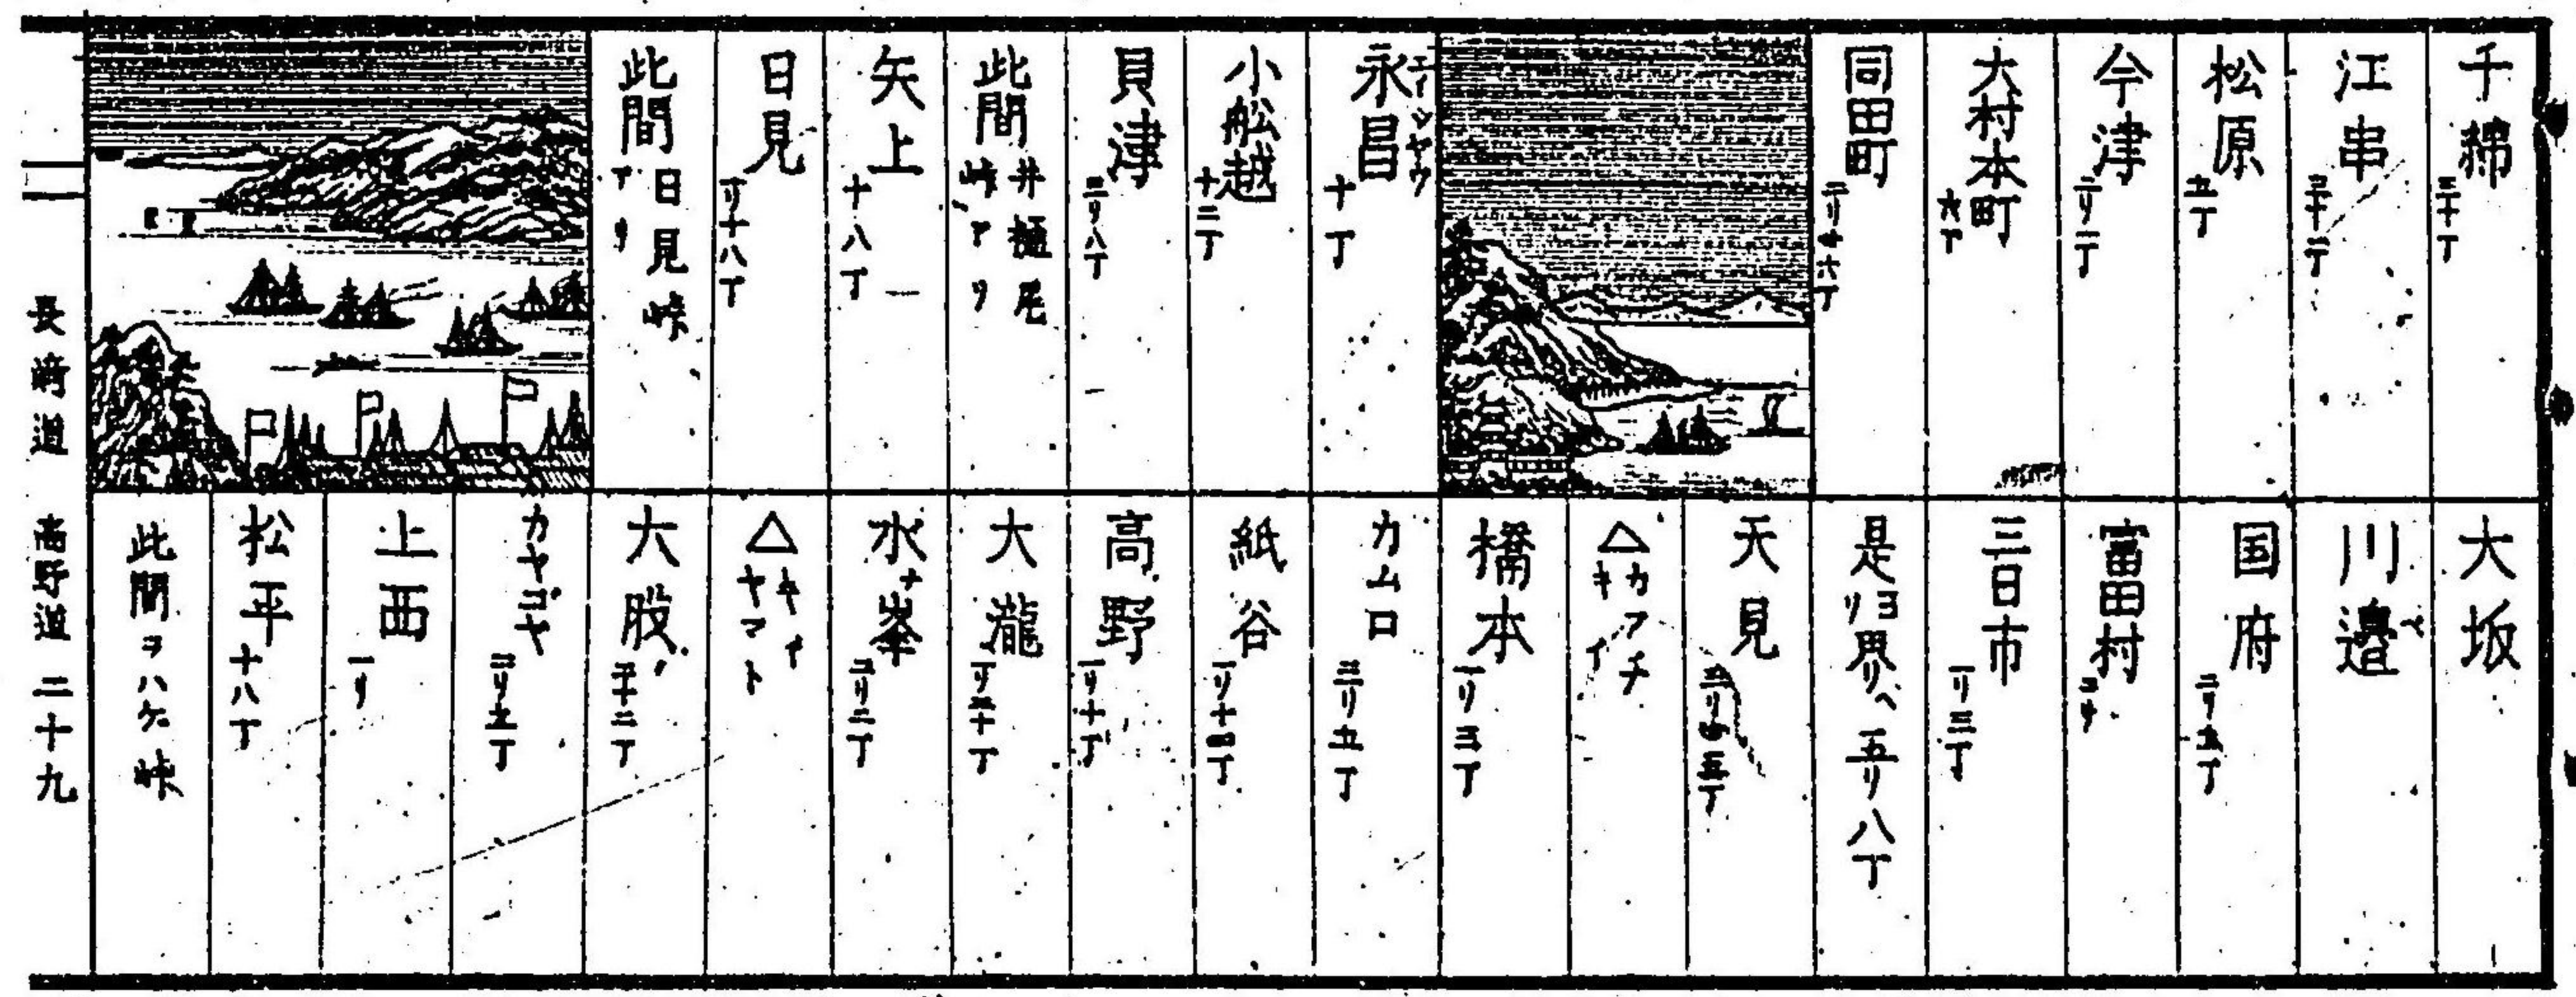 千綿 三十丁
江串 三十一丁
松原 五丁
今津 一リ二丁
大村本町 六丁
同田町
永昌 十丁
小舩越 十二丁
貝津 二リ八丁
此間 井樋尾峠アリ
矢上 十八丁
日見 一リ十八丁
此間 日見峠アリ
大坂
川邉
国府 二リ五丁
富田村
三日市 一リ三丁
是ヨリ界ヘ五リ八丁
天見
△カワチ
キイ
橋本 一リ三丁
カムロ 二リ五丁
紙谷 一リ十四丁
高野 一リ十丁
大瀧 一リ三十丁
水ナ峯 二リ二丁
△キイ
ヤマト
大股
カヤゴヤ 二リ五丁
上西 一リ
松平 十八丁
此間ヲハケ峠
長崎道 高野道 二十九